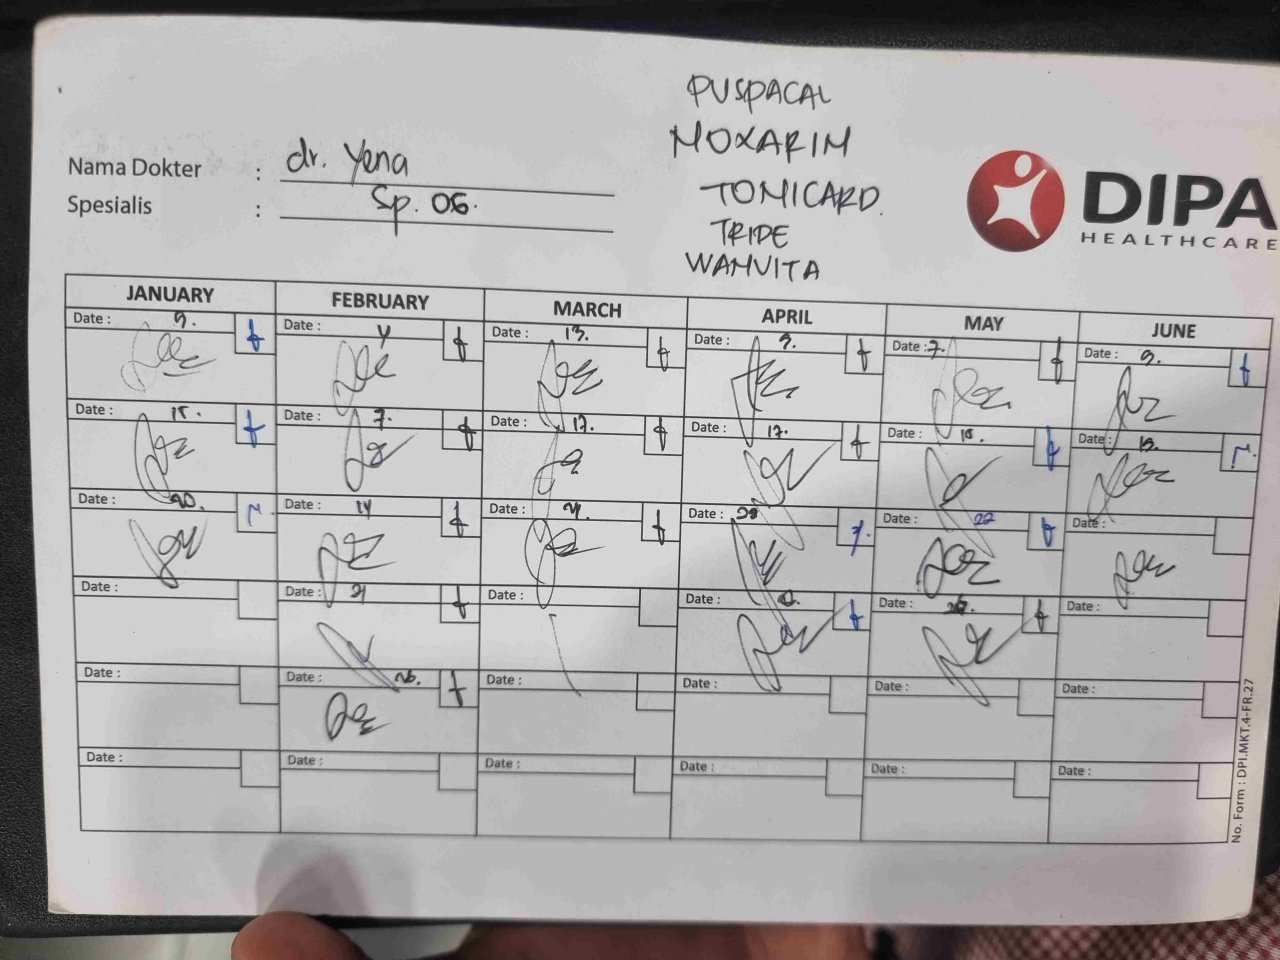 PUSPACAL
MOXARIM
TOMICARD.
TRIDE
WAMVITA
Nama Dokter : dr. Yena
Spesialis : Sp. OG.
DIPA
HEALTHCARE
JANUARY FEBRUARY MARCH APRIL MAY JUNE
Date : 9. Date : 4 Date : 13. Date : 9. Date : 7. Date : 9.
Date : 15. Date : 7. Date : 17. Date : 17. Date : 15. Date : 13.
Date : 20. Date : 14 Date : 21. Date : 28 Date : 22 Date :
Date : Date : 21 Date : Date : Date : Date :
Date : Date : 26. Date : Date : Date : Date :
Date : Date : Date : Date : Date : Date :
No. Form : DPI.MKT.4-FR.27